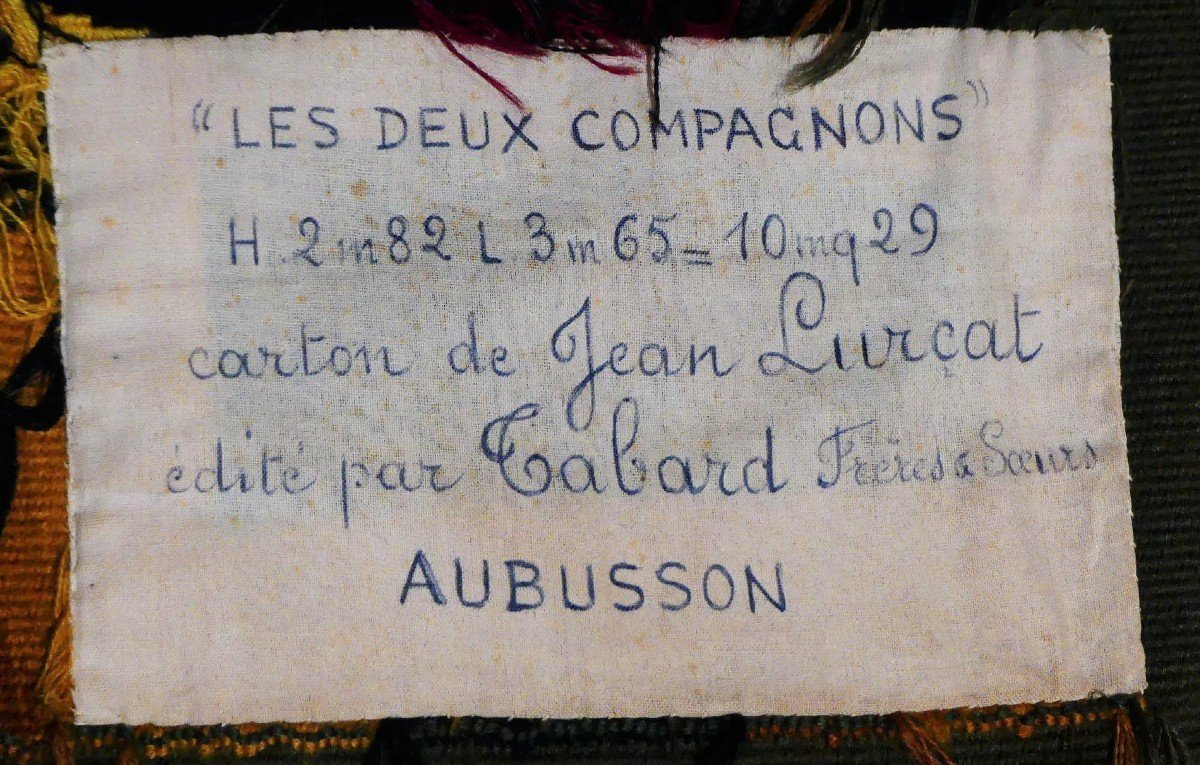 “LES DEUX COMPAGNONS”
H. 2m82 L 3m65 = 10mq29
carton de Jean Lurçat
édité par Tabard Frères & Sœurs
AUBUSSON